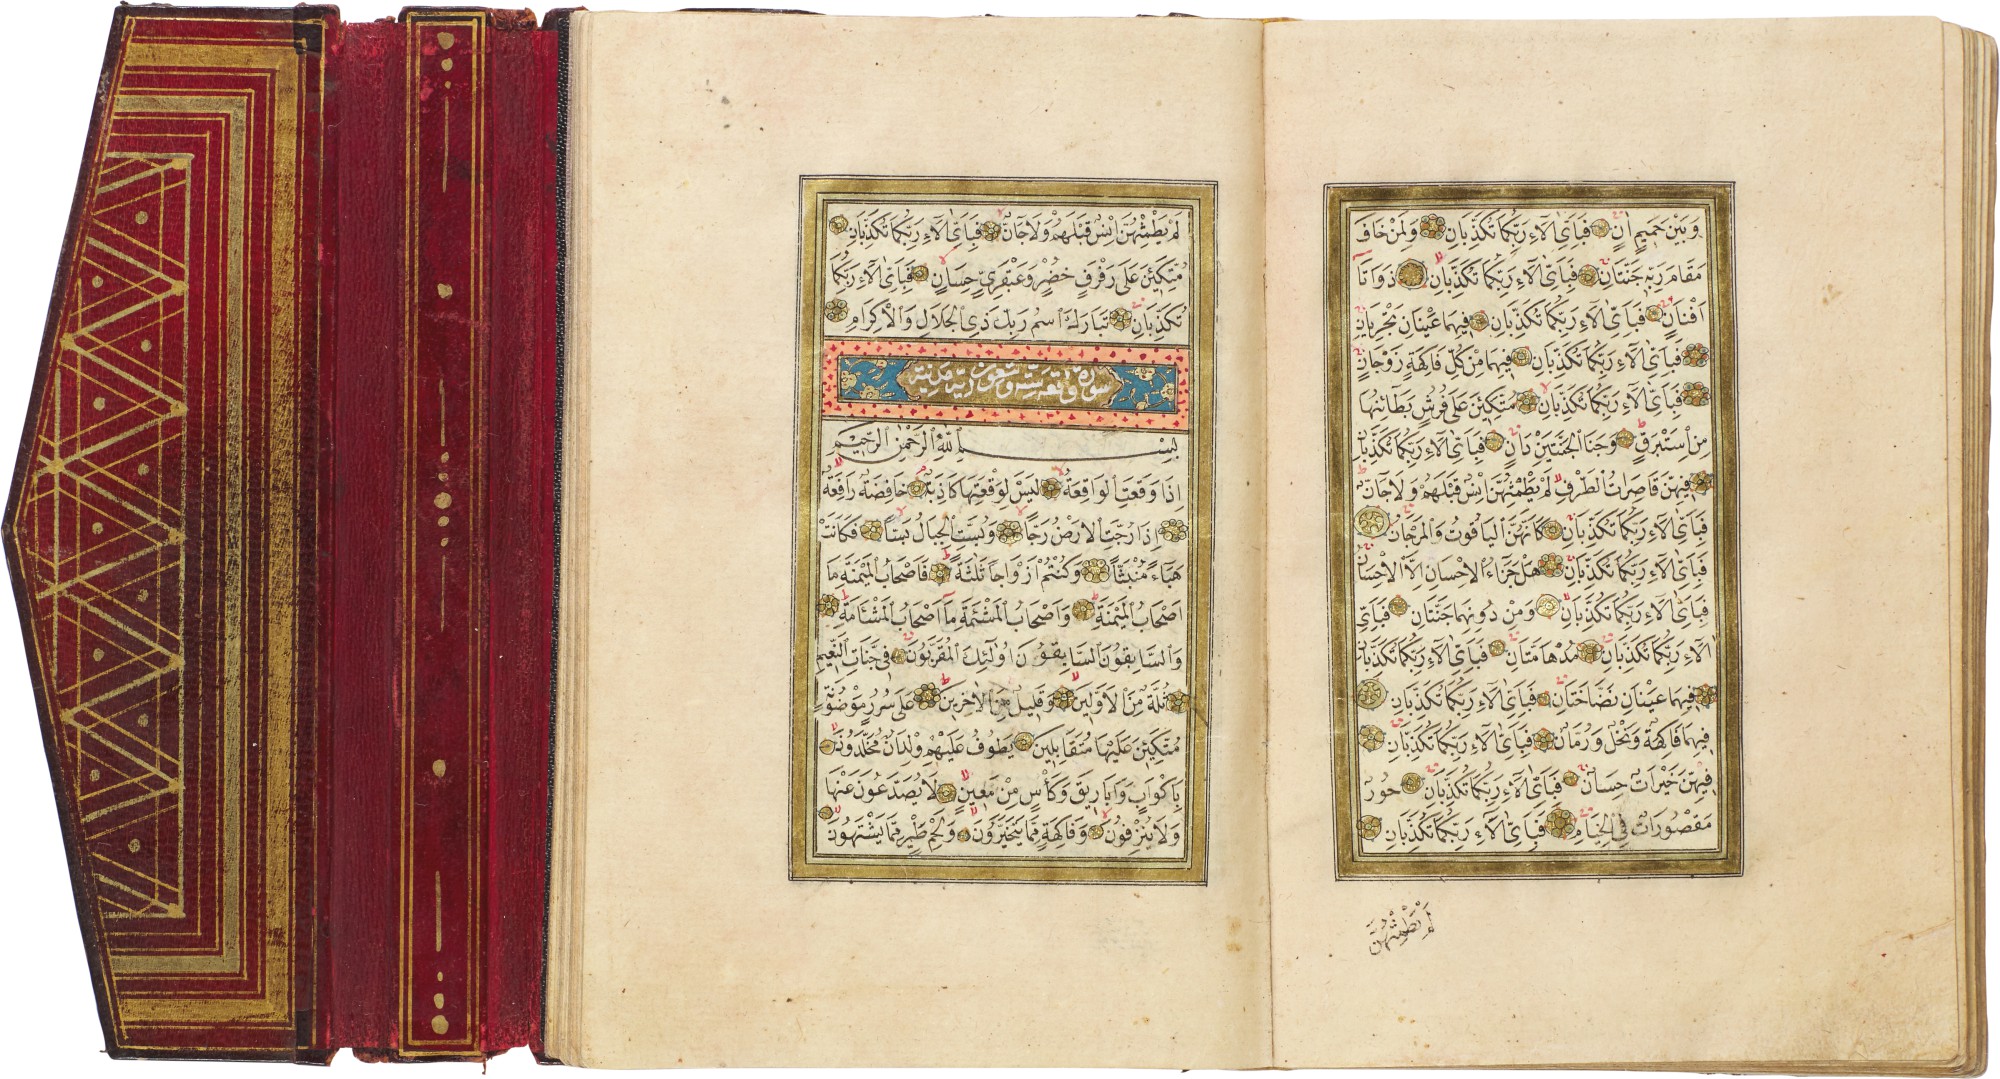 وَبَيْنَ حَمِيمٍ اٰنٍ فَبِاَىِّ اٰلَاۤءِ رَبِّكُمَا تُكَذِّبَانِ وَلِمَنْ خَافَ
مَقَامَ رَبِّهِ جَنَّتَانِ فَبِاَىِّ اٰلَاۤءِ رَبِّكُمَا تُكَذِّبَانِ ذَوَاتَا
اَفْنَانٍ فَبِاَىِّ اٰلَاۤءِ رَبِّكُمَا تُكَذِّبَانِ فِيهِمَا عَيْنَانِ تَجْرِيَانِ
فَبِاَىِّ اٰلَاۤءِ رَبِّكُمَا تُكَذِّبَانِ فِيهِمَا مِنْ كُلِّ فَاكِهَةٍ زَوْجَانِ
فَبِاَىِّ اٰلَاۤءِ رَبِّكُمَا تُكَذِّبَانِ مُتَّكِئِينَ عَلٰى فُرُشٍ بَطَائِنُهَا
مِنْ اِسْتَبْرَقٍ وَجَنَا الْجَنَّتَيْنِ دَانٍ فَبِاَىِّ اٰلَاۤءِ رَبِّكُمَا تُكَذِّبَانِ
فِيهِنَّ قَاصِرَاتُ الطَّرْفِ لَمْ يَطْمِثْهُنَّ اِنْسٌ قَبْلَهُمْ وَلَا جَانٌّ
فَبِاَىِّ اٰلَاۤءِ رَبِّكُمَا تُكَذِّبَانِ كَاَنَّهُنَّ الْيَاقُوتُ وَالْمَرْجَانُ
فَبِاَىِّ اٰلَاۤءِ رَبِّكُمَا تُكَذِّبَانِ هَلْ جَزَاۤءُ الْاِحْسَانِ اِلَّا الْاِحْسَانُ
فَبِاَىِّ اٰلَاۤءِ رَبِّكُمَا تُكَذِّبَانِ وَمِنْ دُونِهِمَا جَنَّتَانِ فَبِاَىِّ
اٰلَاۤءِ رَبِّكُمَا تُكَذِّبَانِ مُدْهَامَّتَانِ فَبِاَىِّ اٰلَاۤءِ رَبِّكُمَا تُكَذِّبَانِ
فِيهِمَا عَيْنَانِ نَضَّاخَتَانِ فَبِاَىِّ اٰلَاۤءِ رَبِّكُمَا تُكَذِّبَانِ
فِيهِمَا فَاكِهَةٌ وَنَخْلٌ وَرُمَّانٌ فَبِاَىِّ اٰلَاۤءِ رَبِّكُمَا تُكَذِّبَانِ
فِيهِنَّ خَيْرَاتٌ حِسَانٌ فَبِاَىِّ اٰلَاۤءِ رَبِّكُمَا تُكَذِّبَانِ حُورٌ
مَقْصُورَاتٌ فِى الْخِيَامِ فَبِاَىِّ اٰلَاۤءِ رَبِّكُمَا تُكَذِّبَانِ
لَمْ يَطْمِثْهُنَّ
لَمْ يَطْمِثْهُنَّ اِنْسٌ قَبْلَهُمْ وَلَا جَانٌّ فَبِاَىِّ اٰلَاۤءِ رَبِّكُمَا تُكَذِّبَانِ
مُتَّكِئِينَ عَلٰى رَفْرَفٍ خُضْرٍ وَعَبْقَرِىٍّ حِسَانٍ فَبِاَىِّ اٰلَاۤءِ رَبِّكُمَا
تُكَذِّبَانِ تَبَارَكَ اسْمُ رَبِّكَ ذِى الْجَلَالِ وَالْاِكْرَامِ
سورة واقعة ست وتسعون اية مدنية
بِسْمِ اللّٰهِ الرَّحْمٰنِ الرَّحِيمِ
اِذَا وَقَعَتِ الْوَاقِعَةُ لَيْسَ لِوَقْعَتِهَا كَاذِبَةٌ خَافِضَةٌ رَافِعَةٌ
اِذَا رُجَّتِ الْاَرْضُ رَجًّا وَبُسَّتِ الْجِبَالُ بَسًّا فَكَانَتْ
هَبَاۤءً مُنْبَثًّا وَكُنْتُمْ اَزْوَاجًا ثَلٰثَةً فَاَصْحَابُ الْمَيْمَنَةِ مَا
اَصْحَابُ الْمَيْمَنَةِ وَاَصْحَابُ الْمَشْئَمَةِ مَا اَصْحَابُ الْمَشْئَامَةِ
وَالسَّابِقُونَ السَّابِقُونَ اُولٰئِكَ الْمُقَرَّبُونَ فِى جَنَّاتِ النَّعِيمِ
ثُلَّةٌ مِنَ الْاَوَّلِينَ وَقَلِيلٌ مِنَ الْاٰخِرِينَ عَلٰى سُرُرٍ مَوْضُونَةٍ
مُتَّكِئِينَ عَلَيْهَا مُتَقَابِلِينَ يَطُوفُ عَلَيْهِمْ وِلْدَانٌ مُخَلَّدُونَ
بِاَكْوَابٍ وَاَبَارِيقَ وَكَأْسٍ مِنْ مَعِينٍ لَا يُصَدَّعُونَ عَنْهَا
وَلَا يُنْزِفُونَ وَفَاكِهَةٍ مِمَّا يَتَخَيَّرُونَ وَلَحْمِ طَيْرٍ مِمَّا يَشْتَهُونَ